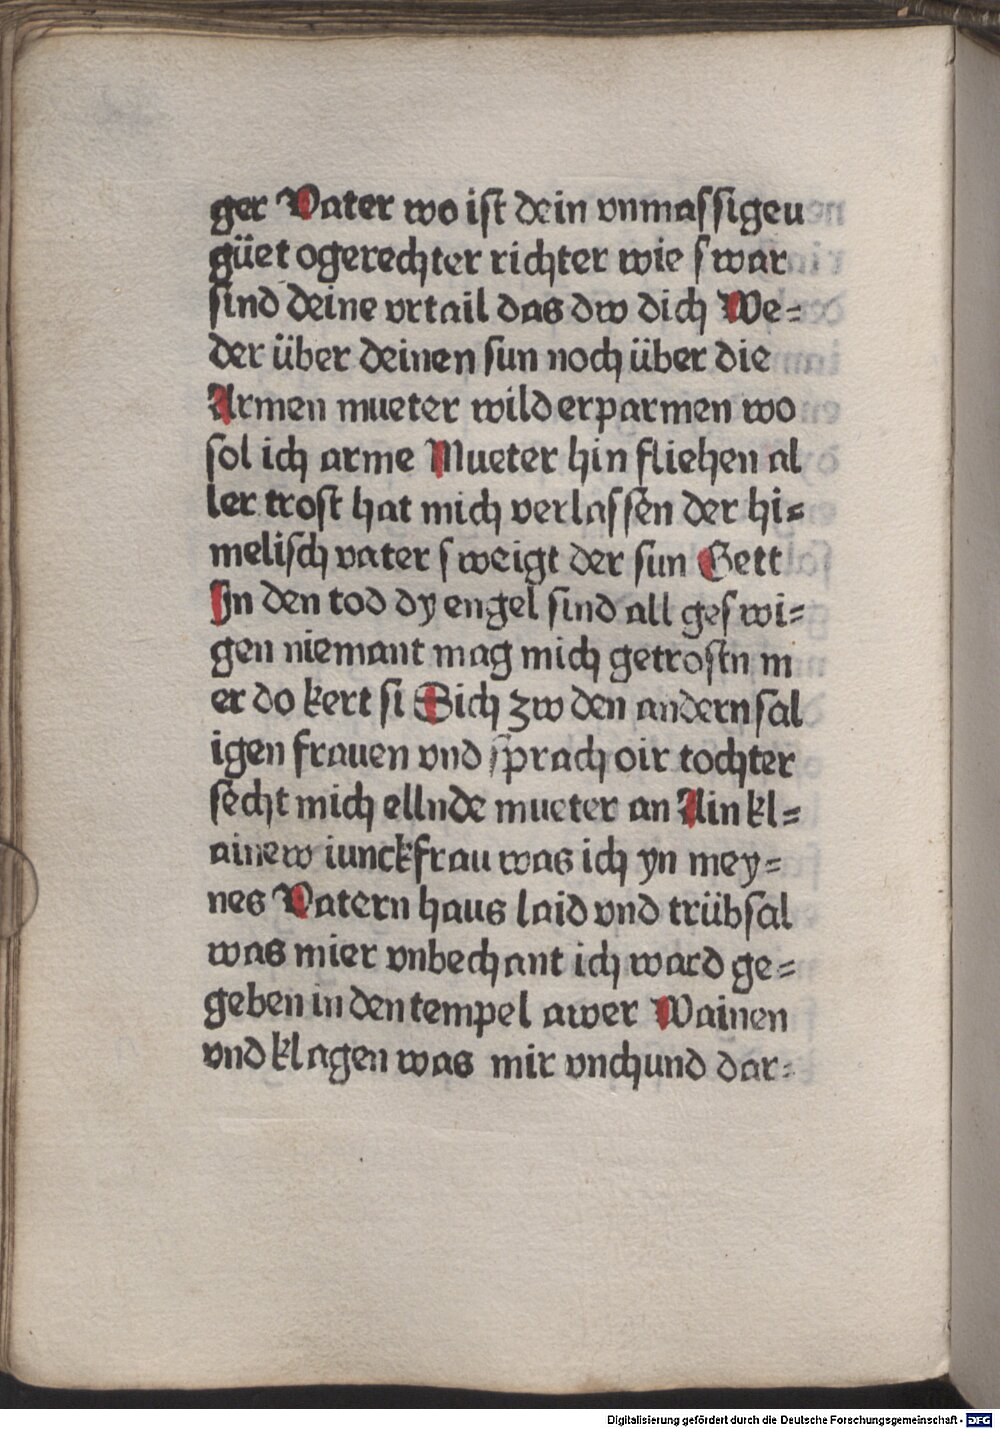 ger Vater wo ist dein vnmassigeu
güet ogerechter richter wie swar
sind deine vrtail das dw dich We-
der über deinen sun noch über die
Armen mueter wild erparmen wo
sol ich arme Mueter hin fliehen al
ler trost hat mich verlassen der hi-
melisch vater sweigt der sun Gett
Jn den tod dy engel sind all geswi-
gen niemant mag mich getrostn m
er do kert si Sich zw den andern sal
igen frauen vnd sprach oir tochter
secht mich ellnde mueter an Ain kl-
ainew iunckfrau was ich yn mey-
nes Vatern haus laid vnd trübsal
was mier vnbechant ich ward ge-
geben in den tempel awer Wainen
vnd klagen was mir vnchund dar-
Digitalisierung gefördert durch die Deutsche Forschungsgemeinschaft - DFG